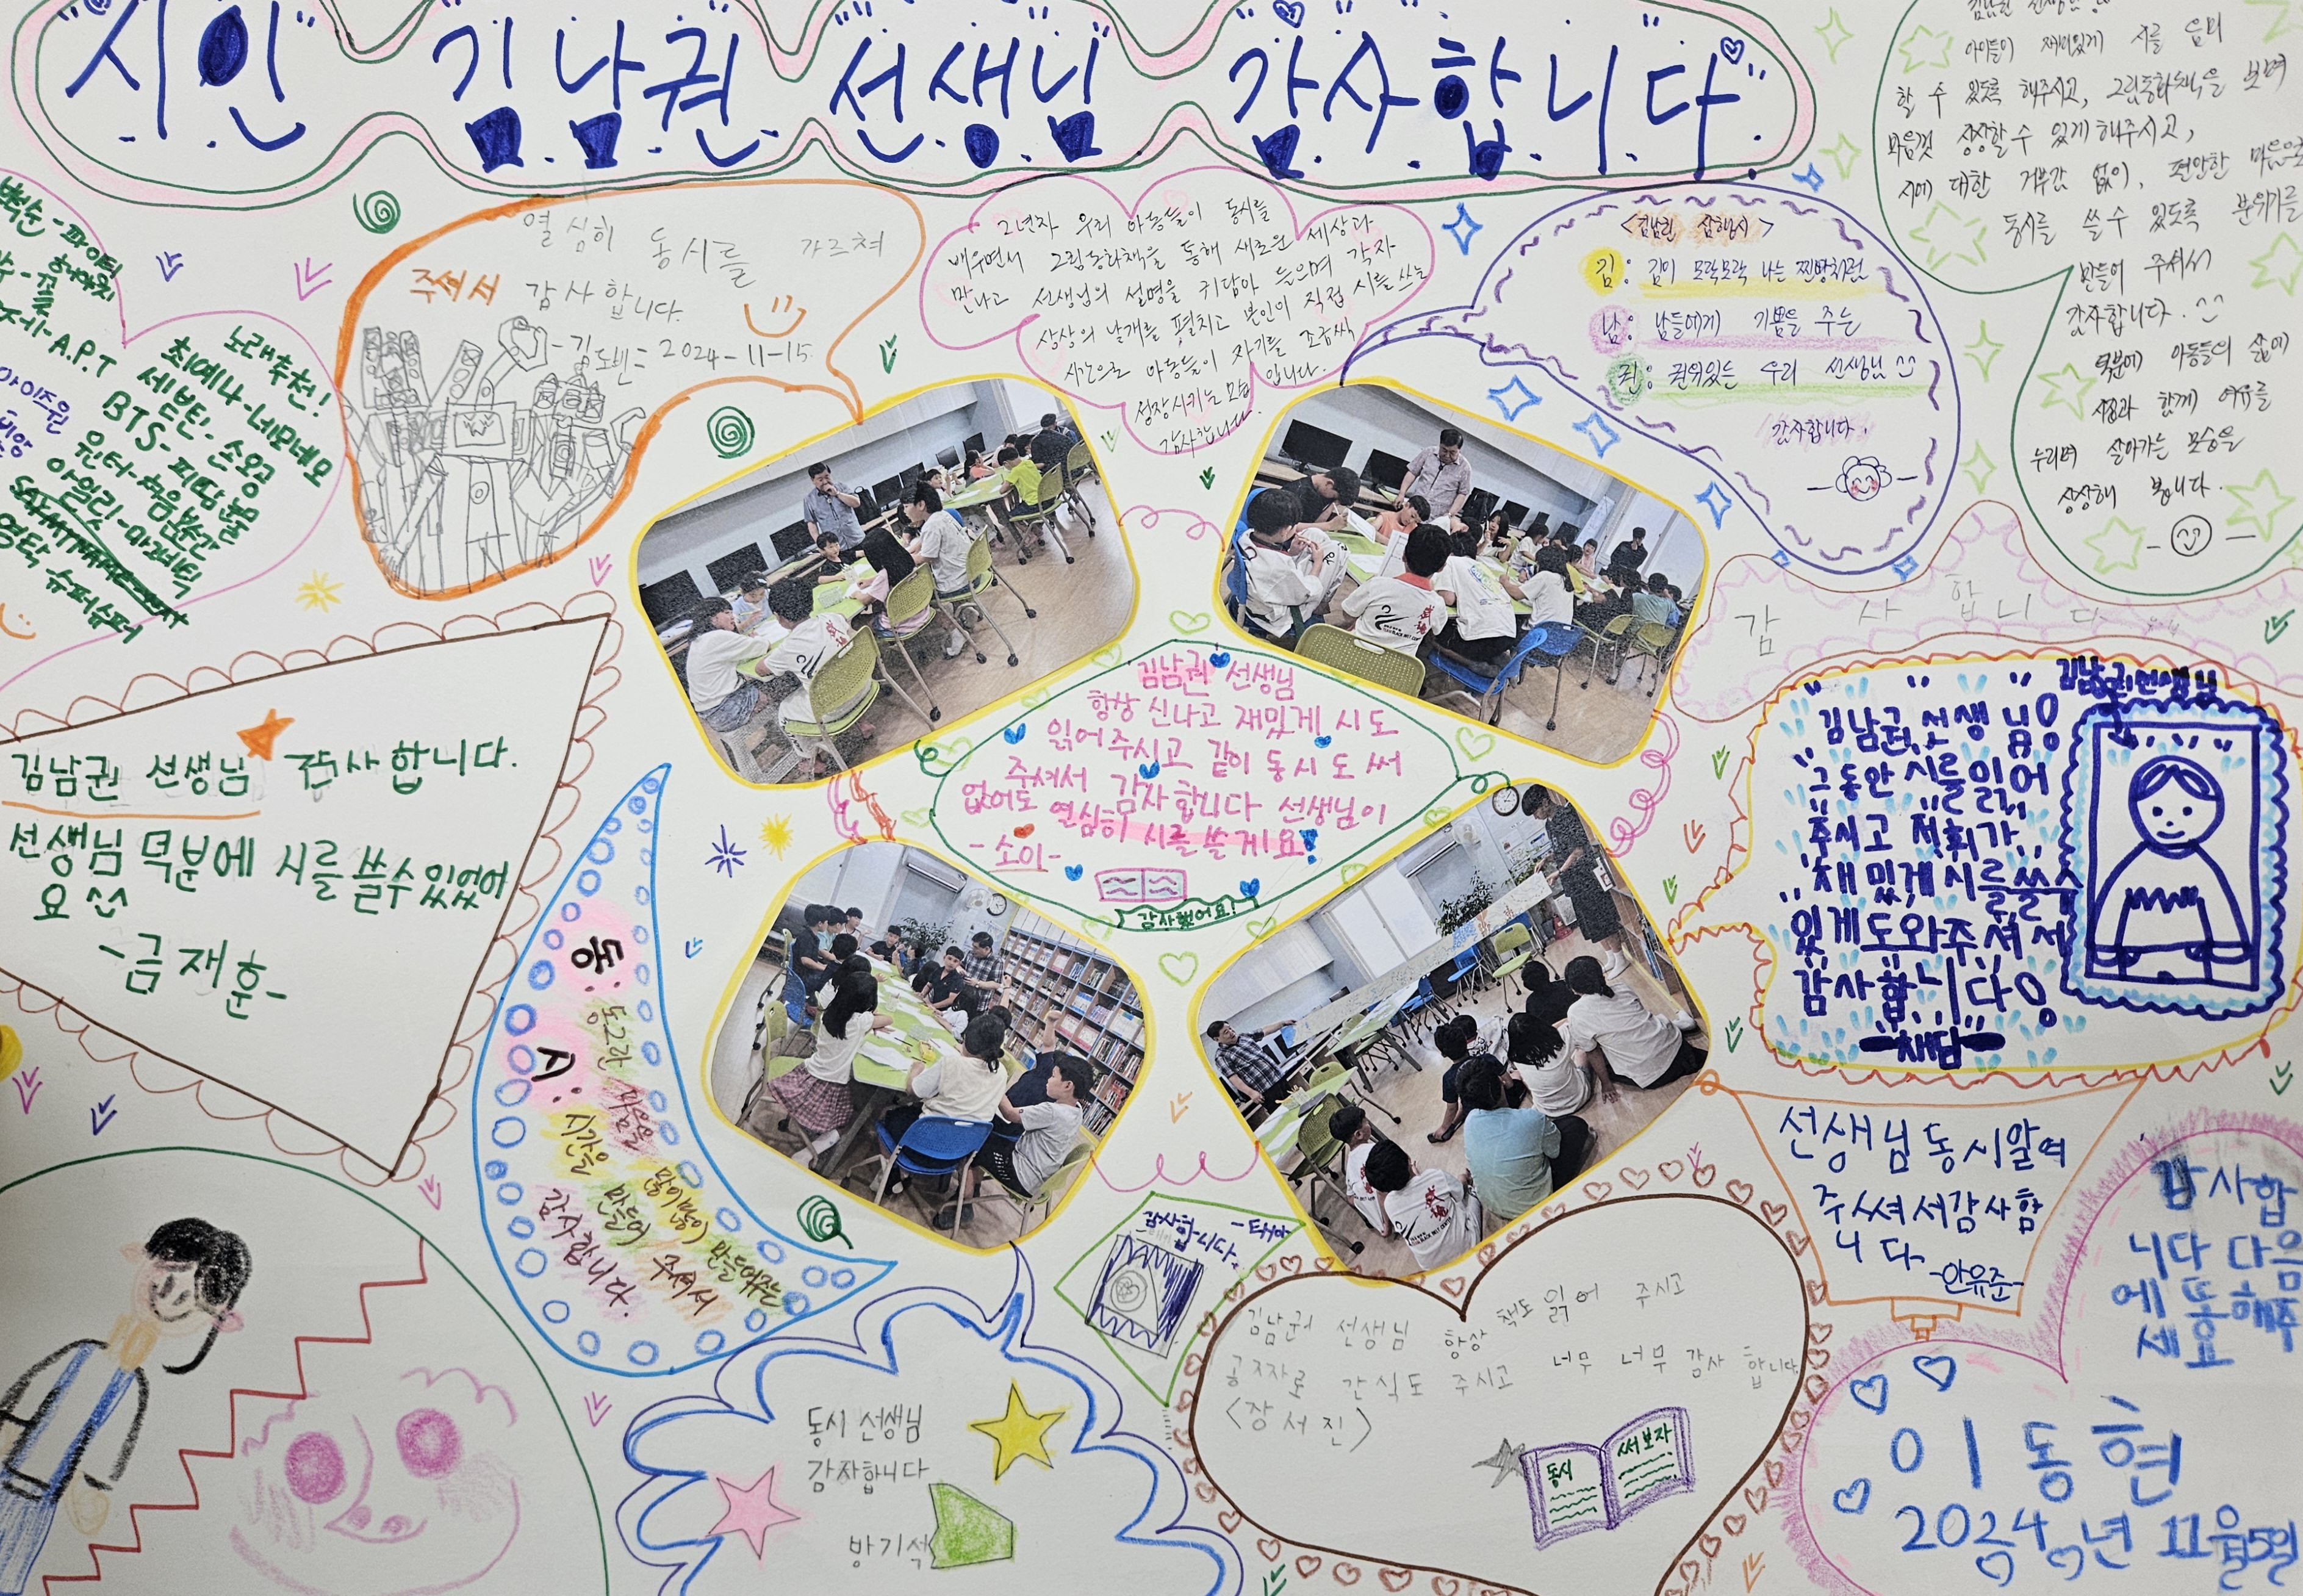 "시인" "김남권" "선생님" "감사합니다"
아이들이 재미있게 시를 음미
할 수 있도록 해주시고, 그림동화책을 보며
마음껏 상상할 수 있게 해주시고,
시에 대한 거부감 없이, 편안한 마음으로
동시를 쓸 수 있도록 분위기를
만들어 주셔서
감사합니다. ^^
덕분에 아동들의 삶에
시집과 함께 여유를
누리며 살아가는 모습을
상상해 봅니다.
노래추천!
최예나-네모네모
세븐틴-손오공
BTS-피땀눈물
윈터-처음본순간
아일릿-마그네틱
영탁 슈퍼슈퍼
A.P.T
아이즈원
열심히 동시를 가르쳐
주셔서 감사합니다.
2024-11-15
2년차 우리 아동들이 동시를
배우면서 그림동화책을 통해 새로운 세상과
만나고 선생님의 설명을 귀담아 들으며 각자
상상의 날개를 펼치고 본인이 직접 시를 쓰는
시간으로 아동들이 자기를 조금씩
성장시키는 모습입니다.
감사합니다.
<김남권 삼행시>
김: 김이 모락모락 나는 찐빵처럼
남: 남들에게 기쁨을 주는
권: 권위있는 우리 선생님 ^^
감사합니다.
감사합니다
김남권 선생님
항상 신나고 재밌게 시도
읽어주시고 같이 동시도 써
주셔서 감사합니다 선생님이
없어도 열심히 시를 쓸게요!
-소이-
감사했어요!
김남권 선생님 감사합니다.
선생님 덕분에 시를 쓸수있었어
요 ^^
-금재훈-
김남권선생님
김남권 선생님!
그동안 시를 읽어
주시고 저희가
재밌게 시를 쓸 수
있게 도와주셔서
감사합니다!
-채담-
동: 동그란 마음을 몽이몽이 만들어주는
시: 시간을 만들어 주셔서
감사합니다.
선생님 동시알려
주셔서감사합
니다
-안유준-
감사합
니다 다음
에 또 해주
세요
이동현
2024년 11월5일
감사합니다.
김남권 선생님 항상 책도 읽어 주시고
공짜로 간식도 주시고 너무 너무 감사 합니다
<장서진>
동시
써보자
동시 선생님
감사합니다
방기석